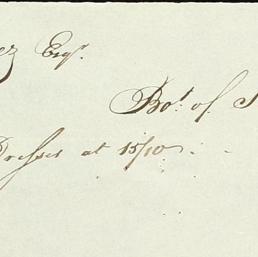 Esqr.
Bot. of
Dresses at 15/10